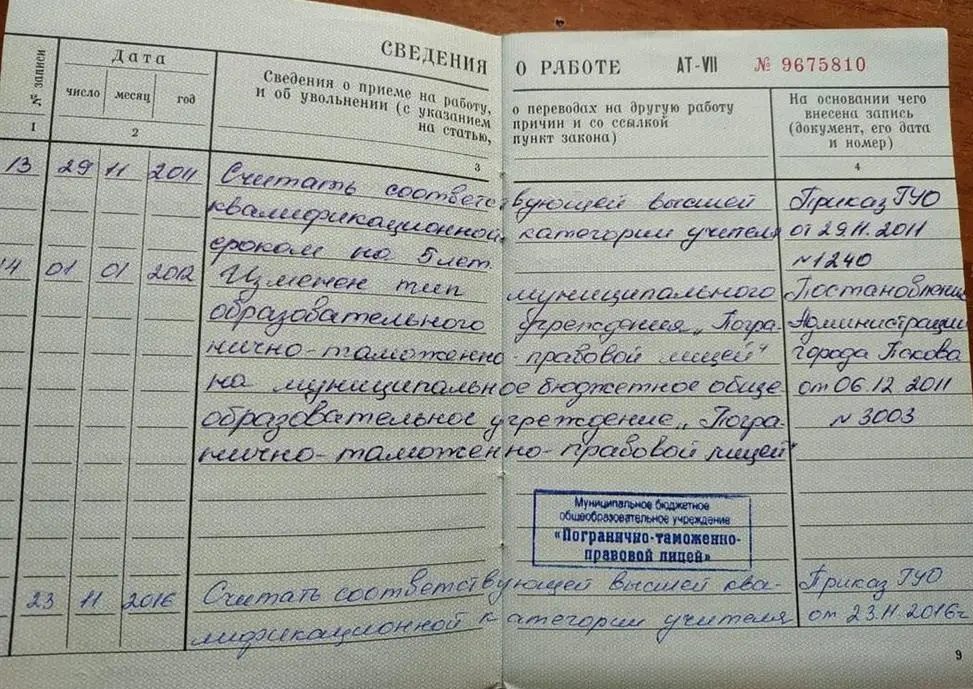 СВЕДЕНИЯ О РАБОТЕ АТ-VII № 9675810
№ записи
Дата
число месяц год
Сведения о приеме на работу, о переводах на другую работу
и об увольнении (с указанием причин и со ссылкой
на статью, пункт закона)
На основании чего
внесена запись
(документ, его дата
и номер)
1 2 3 4
13 29 11 2011 Считать соответствующей высшей Приказ ГУО
квалификационной категории учителя от 29.11.2011
сроком на 5 лет. N1240
14 01 01 2012 Изменен тип муниципального Постановление
образовательного учреждения „Погра- Администрации
нично-таможенно-правовой лицей" города Пскова
на муниципальное бюджетное обще- от 06.12.2011
образовательное учреждение „Погра- N 3003
нично-таможенно-правовой лицей"
Муниципальное бюджетное
общеобразовательное учреждение
«Погранично-таможенно-
правовой лицей»
23 11 2016 Считать соответствующей высшей ква- Приказ ГУО
лификационной категории учителя от 23.11.2016г
9